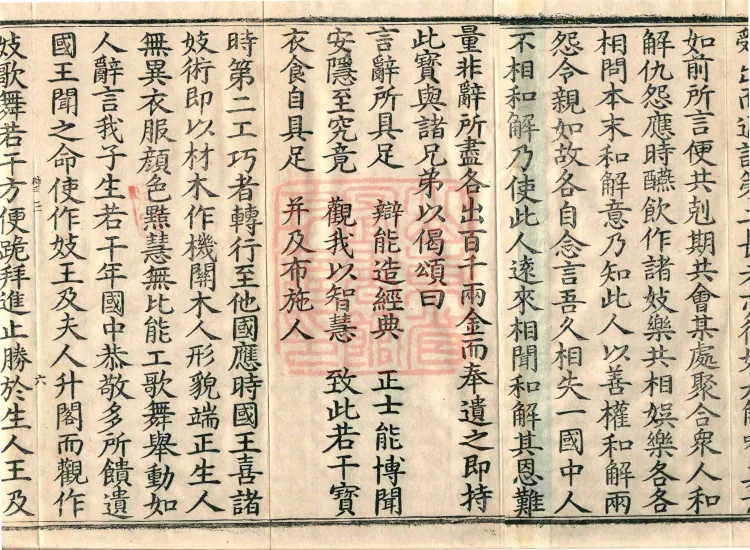 如前所言便共剋期共會某處聚合衆人和
解仇怨應時醼飲作諸妓樂共相娛樂各各
相問本末和解意乃知此人以善權和解兩
怨令親如故各自念言吾久相失一國中人
不相和解乃使此人遠來相聞和解其恩難
量非辭所盡各出百千兩金而奉遺之即持
此寶與諸兄弟以偈頌曰
言辭所具足 辯能造經典 正士能博聞
安隱至究竟 觀我以智慧 致此若干寶
衣食自具足 并及布施人
時第二工巧者轉行至他國應時國王喜諸
妓術即以材木作機關木人形貌端正生人
無異衣服顏色黠慧無比能工歌舞舉動如
人辭言我子生若干年國中恭敬多所饋遺
國王聞之命使作妓王及夫人升閣而觀作
六
妓歌舞若干方便跪拜進止勝於生人王及